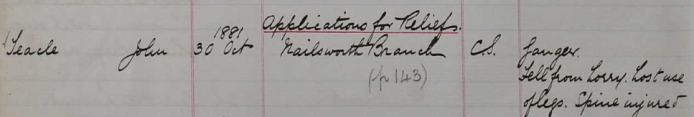 Applications for Relief.
1881
Teacle John 30 Oct Nailsworth Branch C.S. Ganger.
(p 143) Fell from Lorry. Lost use
of legs. Spine injured